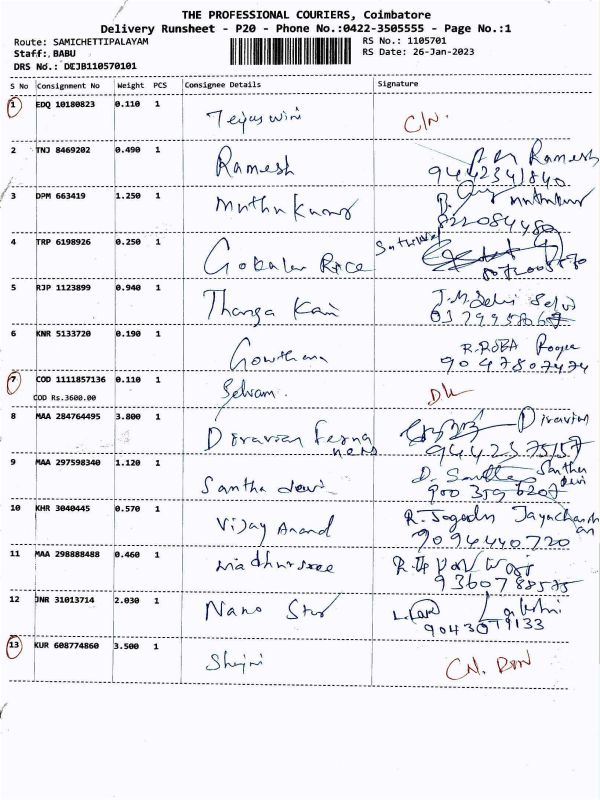 THE PROFESSIONAL COURIERS, Coimbatore
Delivery Runsheet - P20 - Phone No.:0422-3505555 - Page No.:1
Route: SAMICHETTIPALAYAM RS No.: 1105701
Staff: BABU RS Date: 26-Jan-2023
DRS No.: DEJB110570101
S No Consignment No Weight PCS Consignee Details Signature
1 EDQ 10180823 0.110 1 Tejaswini C/N.
2 TNJ 8469202 0.490 1 Ramesh Ramesh
9442341840
3 DPM 663419 1.250 1 Muthu Kumar Muthukumar
822084480
4 TRP 6198926 0.250 1
5 RJP 1123899 0.940 1 Thanga
6 KNR 5133720 0.190 1 Gowtham
9047807474
7 COD 1111857136 0.110 1 Selvam DL
COD Rs.3600.00
8 MAA 284764495 3.800 1 Diravian Diravian
9442375157
9 MAA 297598340 1.120 1 Santha devi Santha devi
900 359 6207
10 KHR 3040445 0.570 1 Vijay Anand
9094440720
11 MAA 298888488 0.460 1 Madhusree
9360788575
12 JNR 31013714 2.030 1 Nano Star
9043079133
13 KUR 608774860 3.500 1 CN.